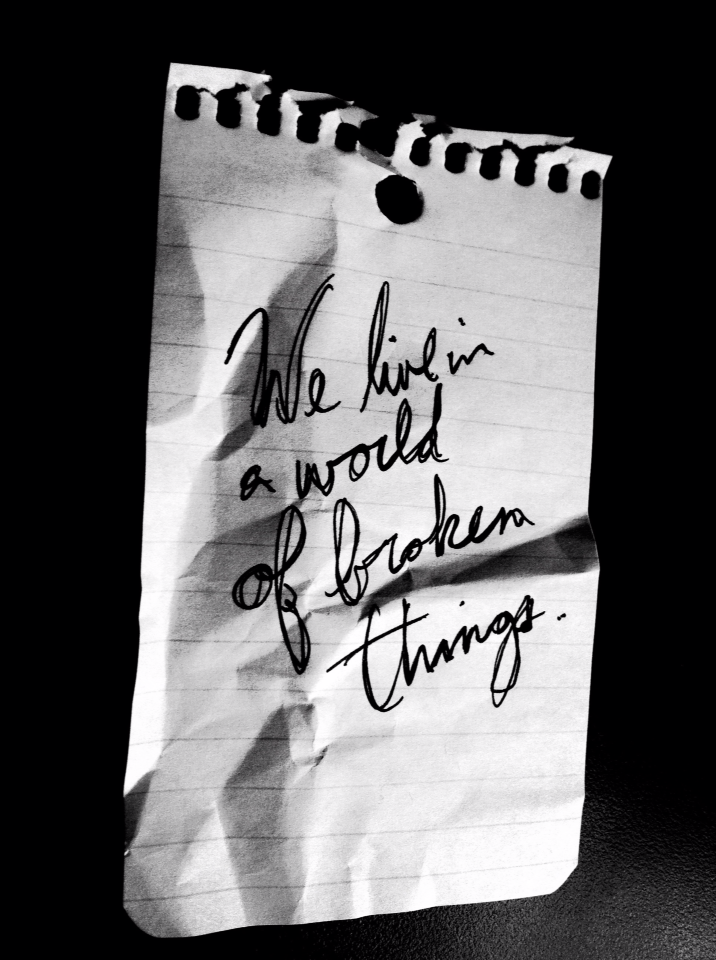 We live in
a world
of broken
things..